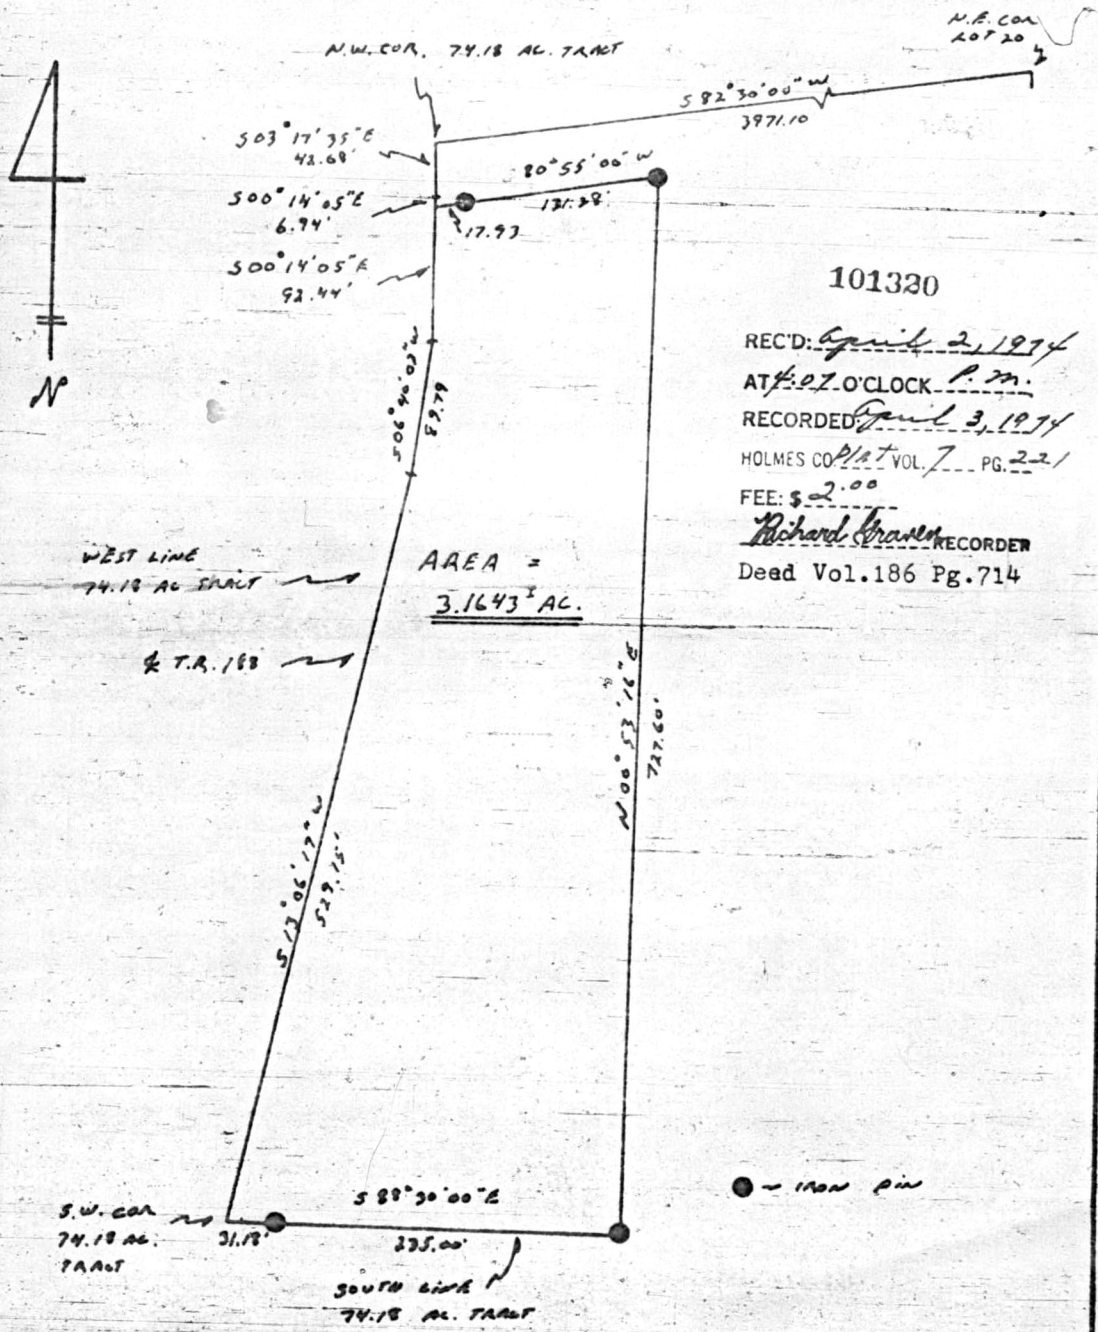 N.E. COR
LOT 20
N.W. COR. 74.18 AC. TRACT
S 82° 30' 00" W
3971.10
S 03° 17' 35" E
42.68'
80° 55' 00" W
131.28'
S 00° 14' 05" E
6.94'
17.93
S 00° 14' 05" E
92.44'
N
S 06° 40' 03" W
89.79
101320
REC'D: April 2, 1974
AT 4:07 O'CLOCK P. M.
RECORDED April 3, 1974
HOLMES CO Plat VOL. 7 PG. 221
FEE: $ 2.00
Richard Graven RECORDER
Deed Vol.186 Pg.714
WEST LINE
74.18 AC TRACT
AREA =
3.1643± AC.
℄ T.R. 188
N 00° 53' 16" E
727.60'
S 13° 06' 17" W
529.15'
- IRON PIN
S 88° 30' 00" E
S.W. COR
74.18 AC.
TRACT
31.18'
235.00'
SOUTH LINE
74.18 AC. TRACT